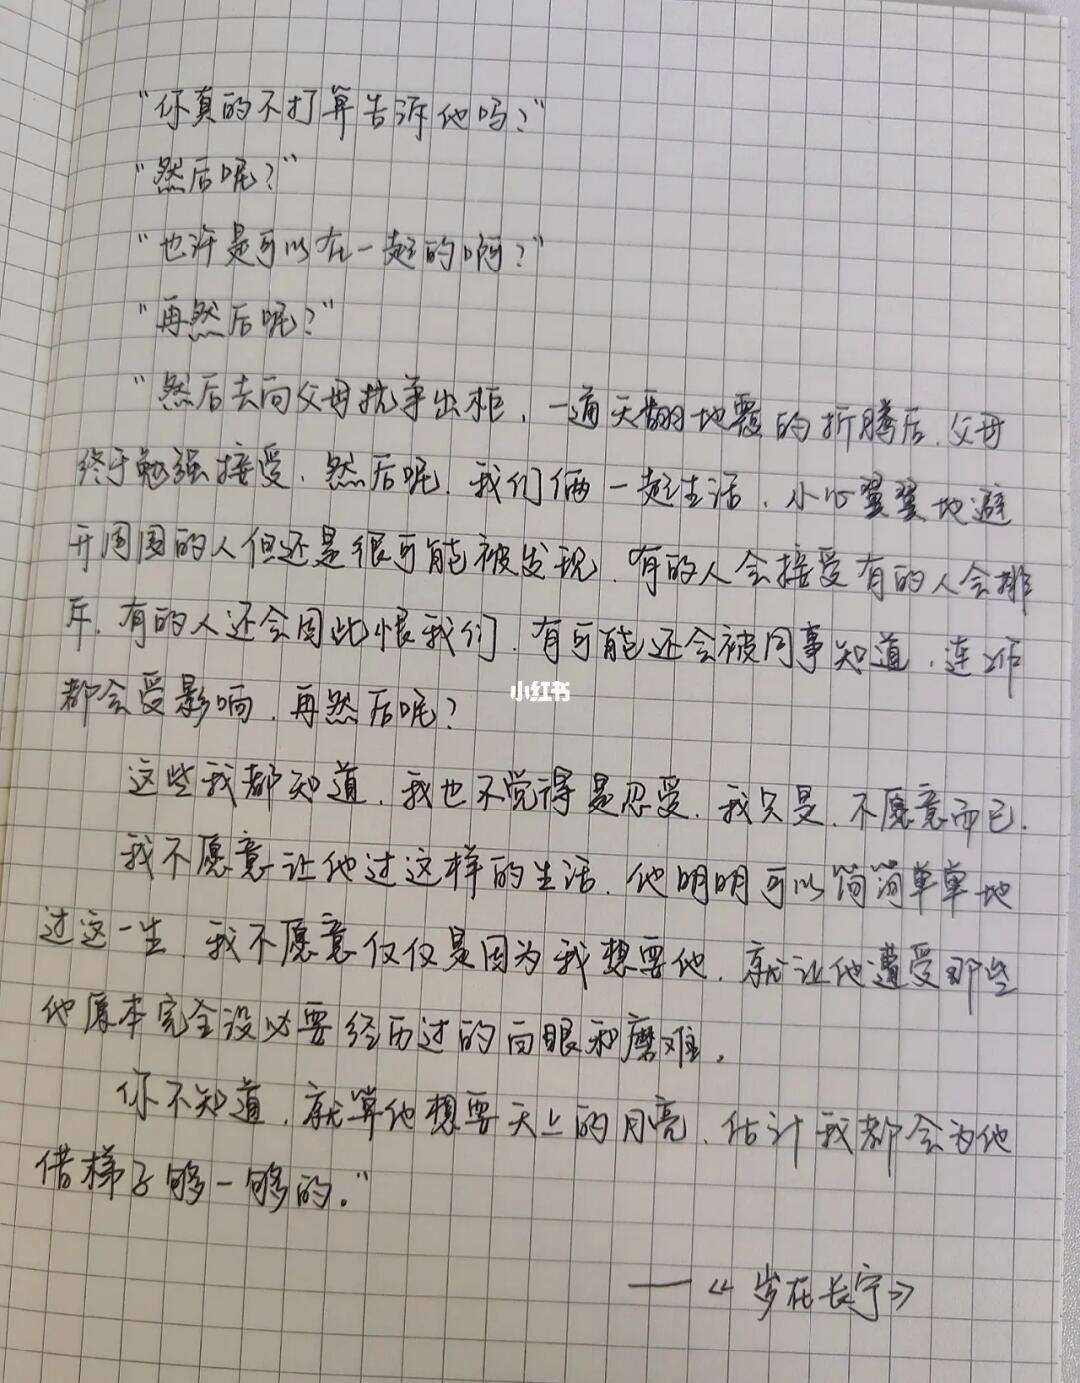 “你真的不打算告诉他吗？”
“然后呢？”
“也许是可以在一起的啊？”
“再然后呢？”
“然后去向父母抗争出柜，一通天翻地覆的折腾后，父母
终于勉强接受，然后呢，我们俩一起生活，小心翼翼地避
开周围的人但还是很可能被发现，有的人会接受有的人会排
斥，有的人还会因此恨我们，有可能还会被同事知道，连工作
都会受影响，再然后呢？
小红书
这些我都知道，我也不觉得是忍受，我只是，不愿意而已．
我不愿意让他过这样的生活，他明明可以简简单单地
过这一生，我不愿意仅仅是因为我想要他，就让他遭受那些
他原本完全没必要经历过的白眼和磨难，
你不知道，就算他想要天上的月亮，估计我都会为他
借梯子够一够的．”
——《岁在长宁》